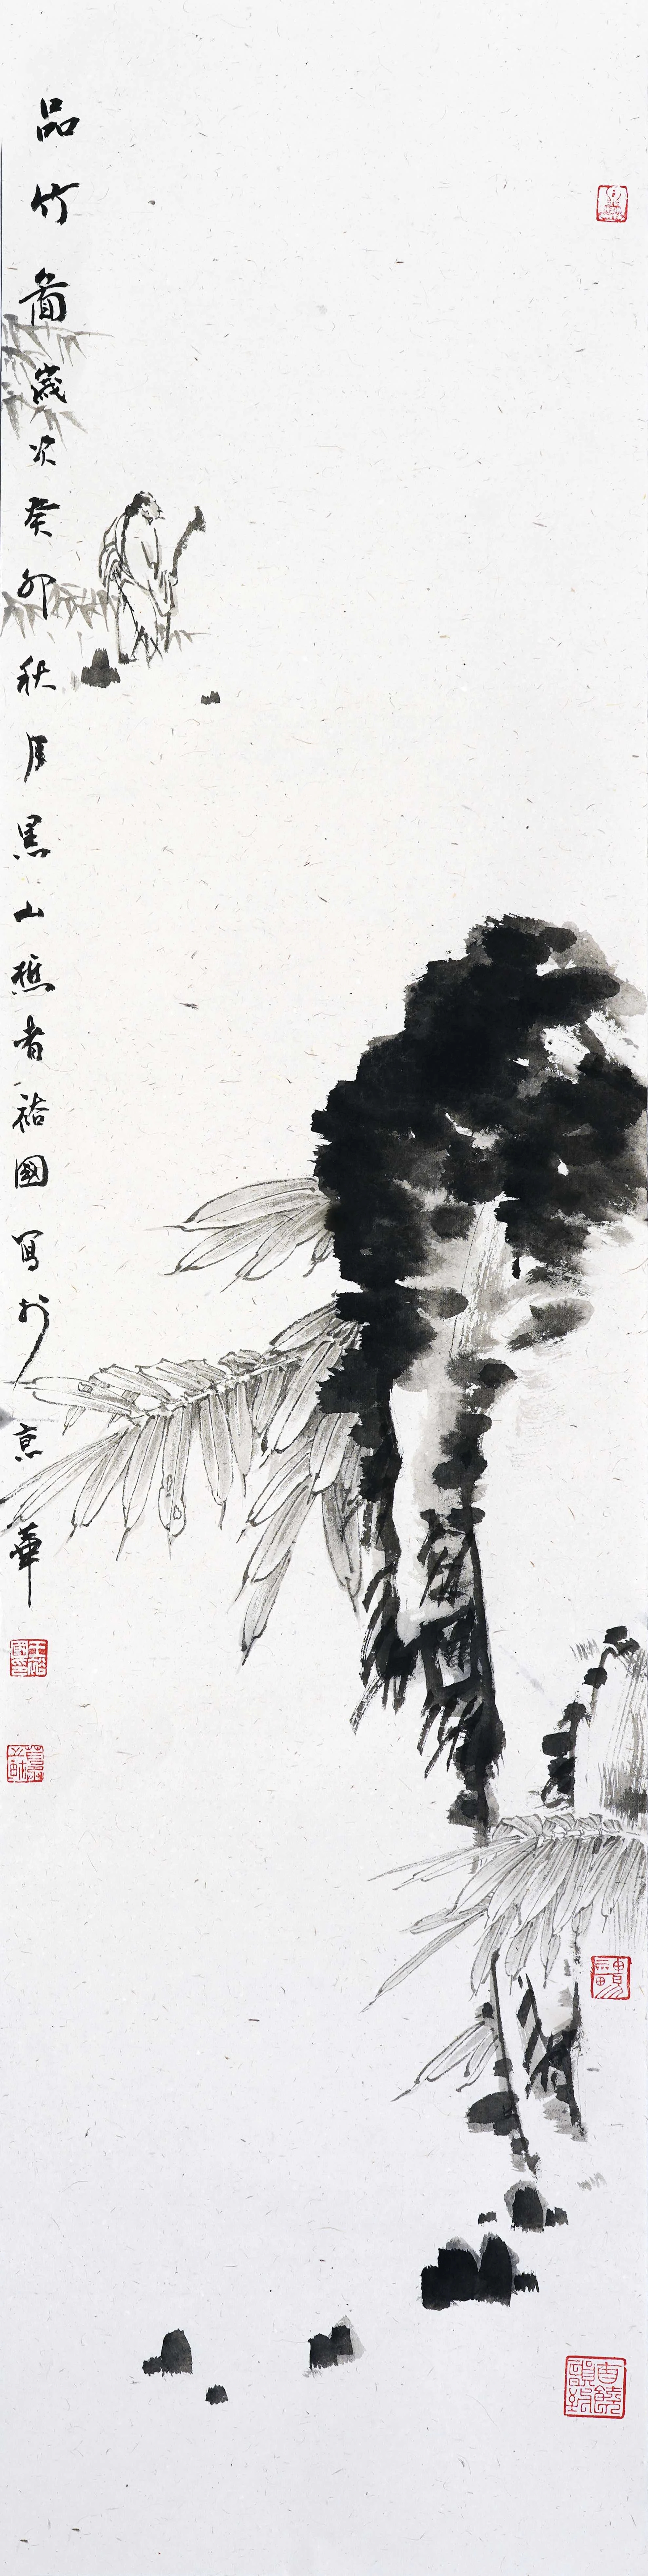 品竹圖歲次癸卯秋月黑山樵者祐國寫於京華